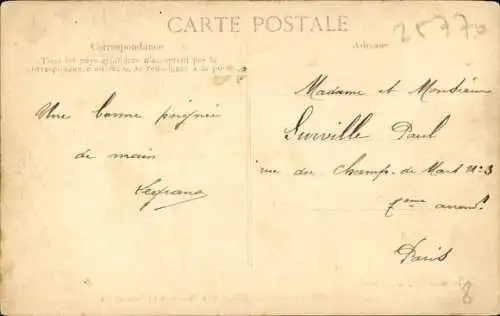 CARTE POSTALE
25770
Correspondance
Adresse
Tous les pays étrangers n'acceptent pas la
correspondance au dos, se renseigner à la poste
Une bonne poignée
de main
Madame et Monsieur
Paul
rue du Champ-de Mars N:3
7eme arrond.t
Paris
8